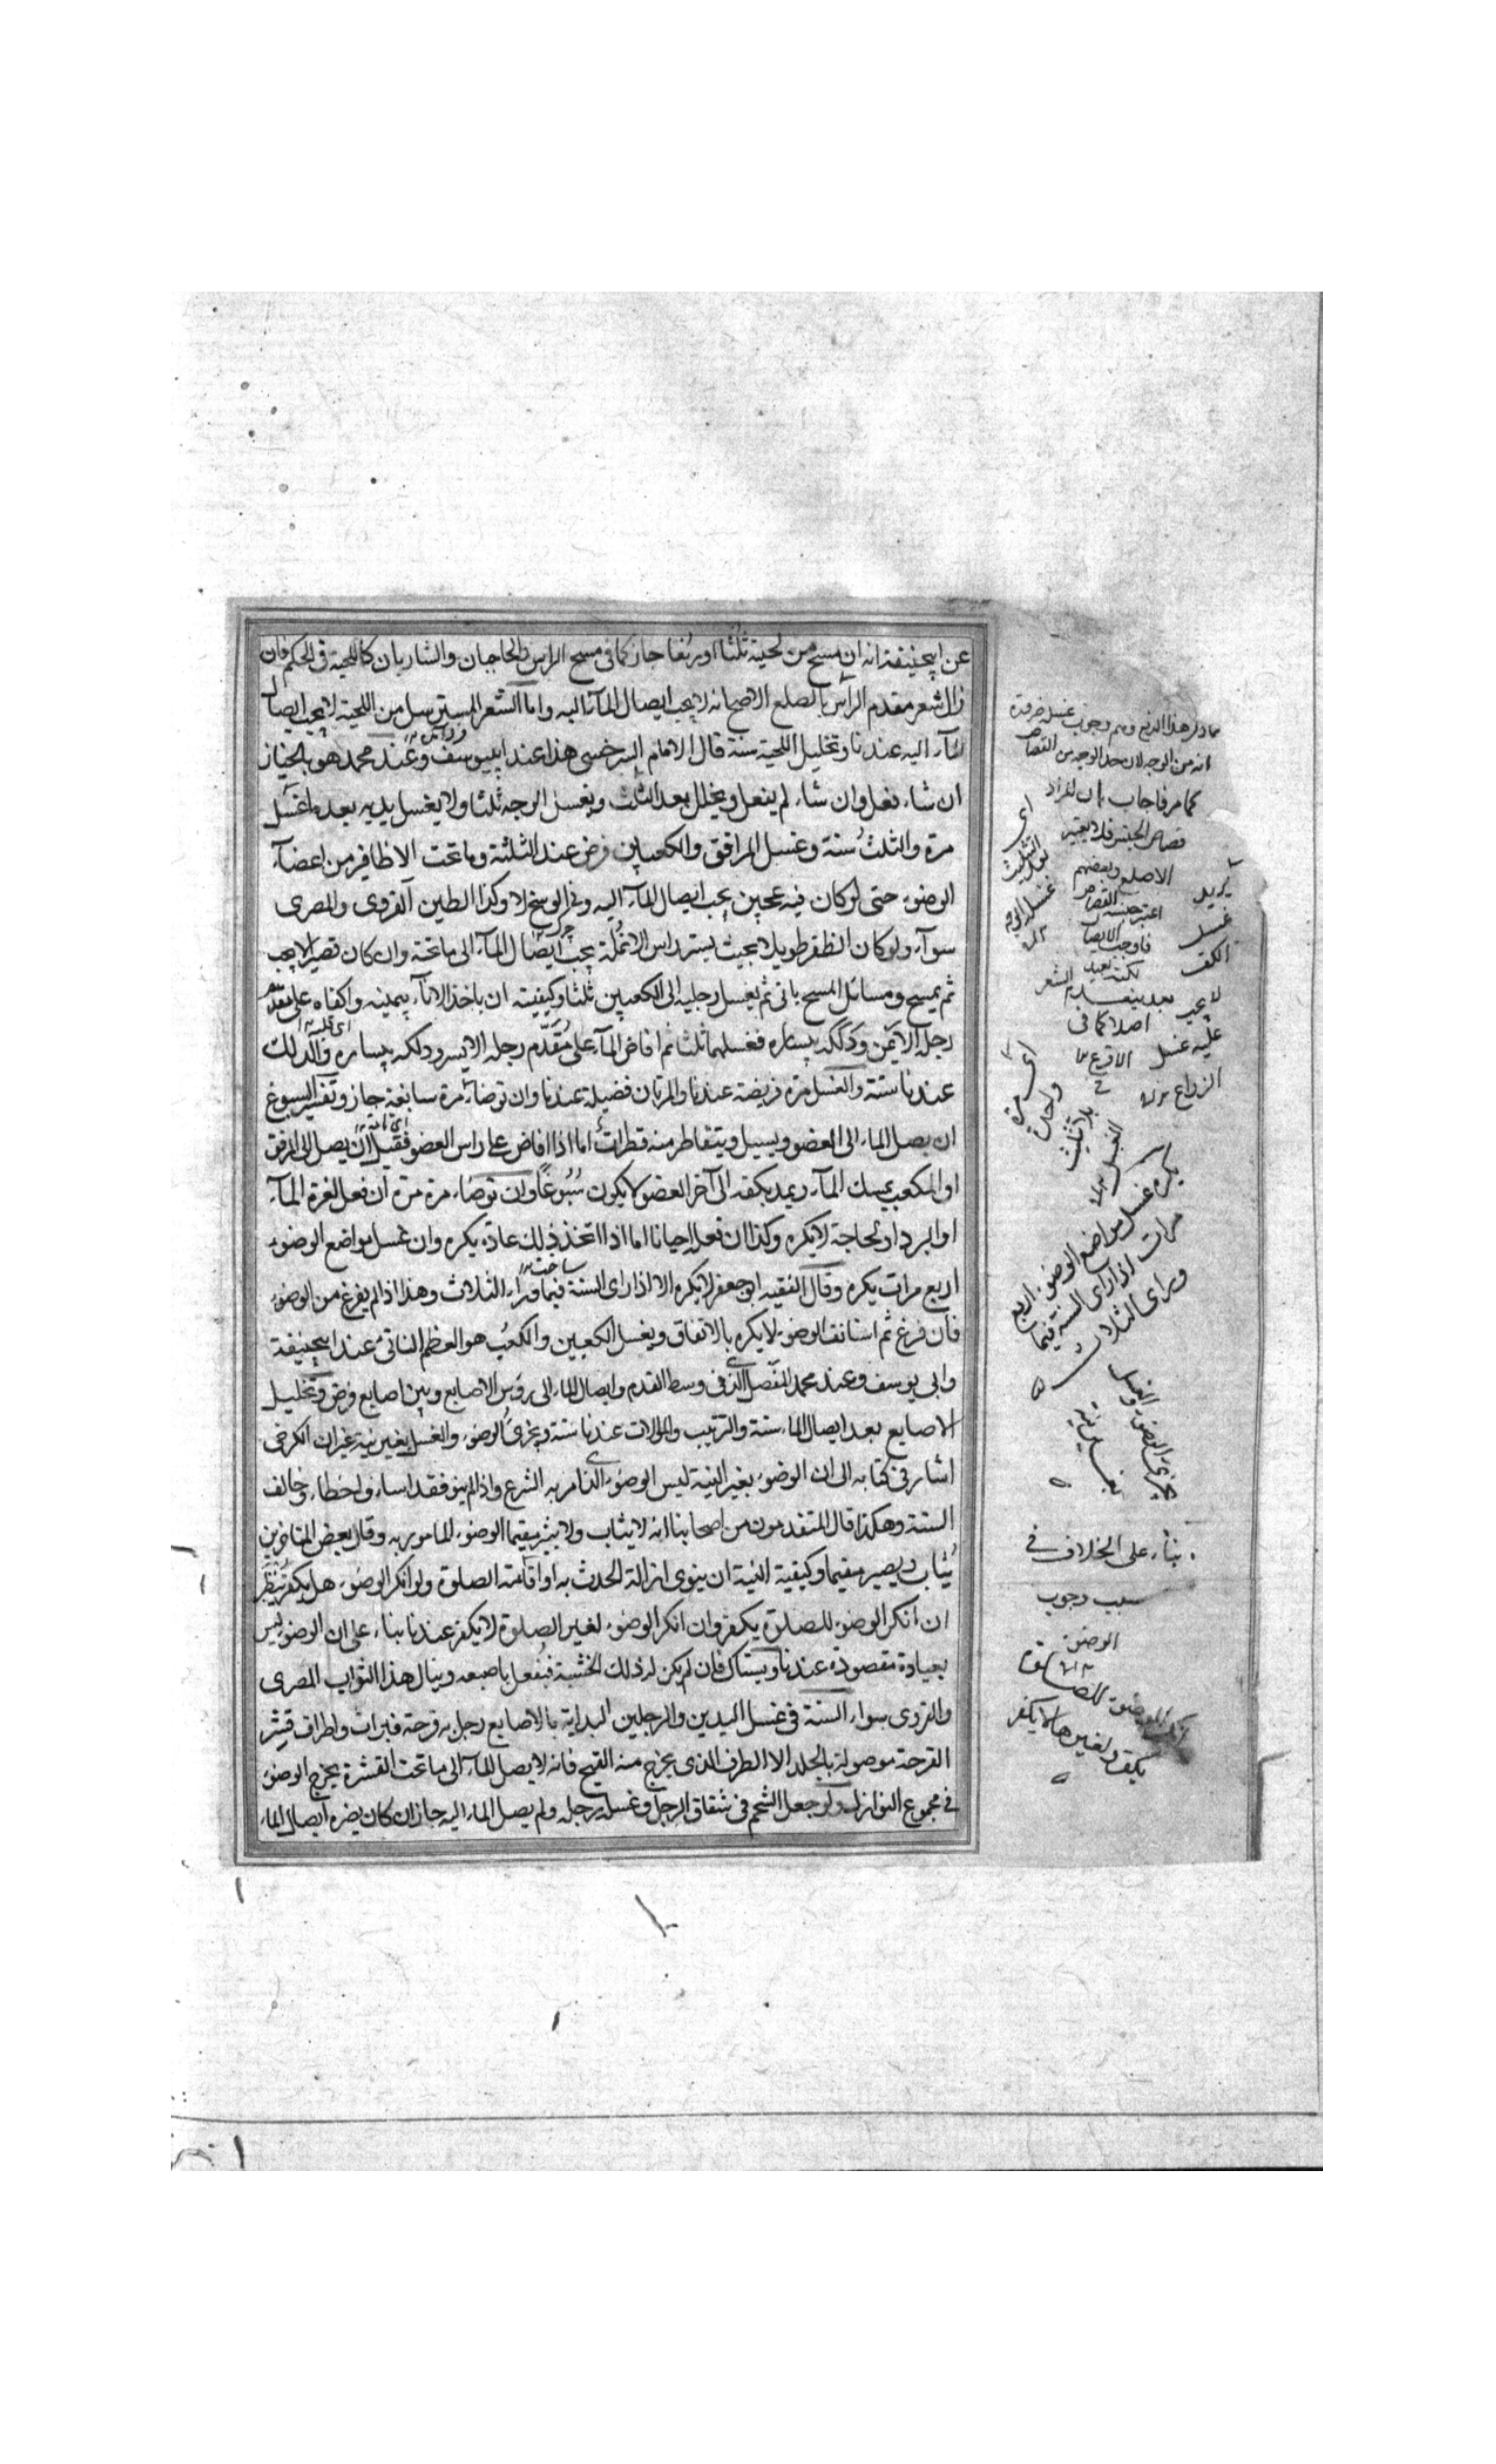 عن ابيحنيفة انه ان مسح من لحيته ثلثا او ربعا جاز كما فى مسح الراس والحاجبان والشاربان كاللحية فى الحكم فان
زال شعر مقدم الراس بالصلع الاصح انه لا يجب ايصال المآء اليه واما الشعر المسترسل من اللحية لا يجب ايصال
المآء اليه عندنا وتخليل اللحية سنة قال الامام السرخسى هذا عند ابييوسف وعند محمد هو بالخيار
ان شاء فعل وان شاء لم يفعل ويخلل بعد الثلث ويغسل الوجه ثلثا ولا يغسل يديه بعد ما غسل
مرة والثلث سنة وغسل المرافق والكعبين فرض عند الثلثة وما تحت الاظافير من اعضآء
الوضوء حتى لو كان فيه عجين يجب ايصال المآء اليه وفى الوسخ لا وكذا الطين القروى والمصرى
سوآء ولو كان الظفر طويلا بحيث يستر راس الانملة يجب ايصال المآء الى ما تحته وان كان قصيرا لا يجب
ثم يمسح ومسائل المسح ياتى ثم يغسل رجليه الى الكعبين ثلثا وكيفيته ان ياخذ الانآء بيمينه واكفاه على مقدم
رجله الايمن ودلكه بيساره فغسلهما ثلثا ثم افاض المآء على مقدم رجله الايسر ودلكه بيساره والدلك
عندنا سنة والغسل مرة فريضة عندنا والمرتان فضيلة عندنا وان توضا مرة سابغة جاز وتفسير السبوغ
ان يصل الماء الى العضو ويسيل ويتقاطر منه قطرات اما اذا افاض على راس العضو فقبل ان يصل الى المرفق
او الكعب يمسك المآء ويمد بكفه الى آخر العضو لا يكون سبوغا وان توضاء مرة مرة ان فعل لعزة المآء
او البرد او لحاجة لا يكره وكذا ان فعل احيانا اما اذا اتخذ ذلك عادة يكره وان غسل مواضع الوضوء
اربع مرات يكره وقال الفقيه ابو جعفر لا يكره الا اذا راى السنة فيما وراء الثلاث وهذا اذا لم يفرغ من الوضوء
فان فرغ ثم استانف الوضوء لا يكره بالاتفاق ويغسل الكعبين والكعب هو العظم الناتى عند ابيحنيفة
وابى يوسف وعند محمد المفصل الذى فى وسط القدم وايصال الماء الى رؤس الاصابع وبين اصابع فرض وتخليل
الاصابع بعد ايصال الماء سنة والترتيب والموالات عندنا سنة ويجزئ الوضوء والغسل بغير نية غير ان الكرخى
اشار فى كتابه الى ان الوضوء بغير النية ليس الوضوء الذى امر به الشرع واذا لم ينو فقد اساء واخطاء وخالف
السنة وهكذا قال المتقدمون من اصحابنا انه لا يثاب ولا يصير مقيما الوضوء المامور به وقال بعض المتاخرين
يثاب ويصير مقيما وكيفية النية ان ينوى ازالة الحدث به او اقامة الصلوة ولو انكر الوضوء هل يكفر ينظر
ان انكر الوضوء للصلوة يكفر وان انكر الوضوء لغير الصلوة لا يكفر عندنا بناء على ان الوضوء ليس
بعبادة مقصودة عندنا ويستاك فان لم يكن له ذلك الخشبة فيفعل باصبعه وينال هذا الثواب المصرى
والقروى سواء السنة فى غسل اليدين والرجلين البداية بالاصابع رجل به قرحة فبرات واطراف قشر
القرحة موصولة بالجلد الا الطرف الذى يخرج منه القيح فانه لا يصل المآء الى ما تحت القشرة يجزئ الوضوء
فى مجموع النوازل ولو جعل الشحم فى شقاق الرجل وغسل رجله ولم يصل الماء اليه جاز ان كان يضره ايصال الماء
انه من الوجه لان حد الوجه من القصاص
كما مر فاجاب بان المراد
قصاص الجنس فلا يعتبر
الاصلع وبعضهم
يريد
غسل
الكف
لا يجب
عليه غسل
الذراع
اى
مرة
واحدة
بلا تثليث
يكره غسل مواضع الوضوء اربع
مرات اذا راى السنة فيما
وراى الثلاث
يجزئ الوضوء والغسل
بغير نية
بناء على الخلاف فى
سبب وجوب
الوضوء
انكر الوضوء للصلوة
يكفر ولغيرها لا يكفر